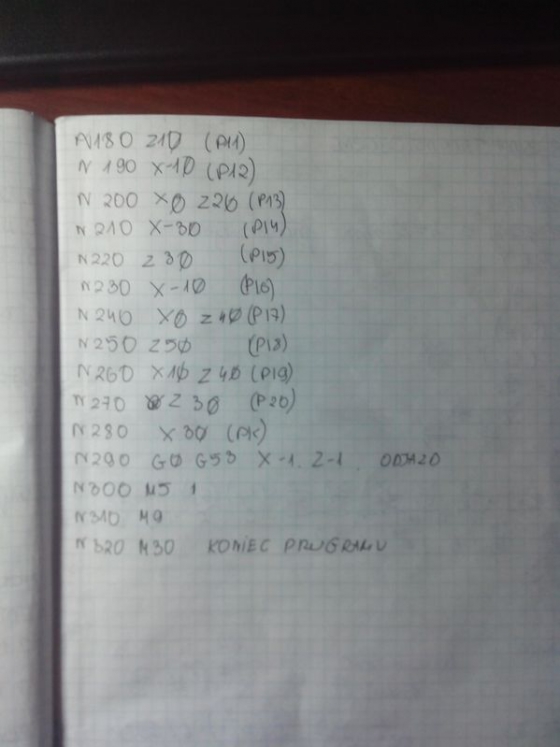 N180 Z10 (P11)
N 190 X-10 (P12)
N 200 X0 Z20 (P13)
N 210 X-30 (P14)
N220 Z 30 (P15)
N230 X-10 (P16)
N 240 X0 Z 40 (P17)
N250 Z50 (P18)
N260 X10 Z 40 (P19)
N 270 Z 30 (P20)
N 280 X 30 (PK)
N290 G0 G53 X-1. Z-1. ODJAZD
N300 M5 1
N310 M9
N320 M30 KONIEC PROGRAMU